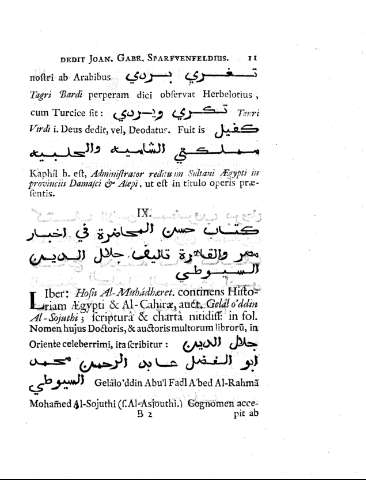 DEDIT JOAN. GABR. SPARFVENFELDIUS. 11
noſtri ab Arabibus تـغـري بـردي
Tagri Bardi perperam dici obſervat Herbelotius,
cum Turcice ſit: تـكـري ويـردي Terri
Virdi i. Deus dedit, vel, Deodatur. Fuit is كفيل
مملكتي الشامية والحلبية
Kaphil h. eſt, Adminiſtrator redituum Sultani Ægypti in
provinciis Damaſci & Alepi, ut eſt in titulo operis præ-
ſentis.
IX.
كتاب حسن المحاضرة في اخبار
مصر والقاهرة تاليف جلال الدين
السيوطي
LIber: Hoſn Al-Muhádhæret. continens Hiſto-
riam Ægypti & Al-Cahiræ, auct. Gelál o'ddin
Al-Sojuthi; ſcriptura & charta nitidiſſ: in fol.
Nomen hujus Doctoris, & auctoris multorum librorū, in
Oriente celeberrimi, ita ſcribitur: جلال الدين
ابو الفضل عابد الرحمن محمد
السيوطي Gelálo'ddin Abu'l Fadl A'bed Al-Rahmā
Mohamēd Al-Sojuthi (ſ. Al-Asjouthi.) Cognomen acce-
B 2 pit ab